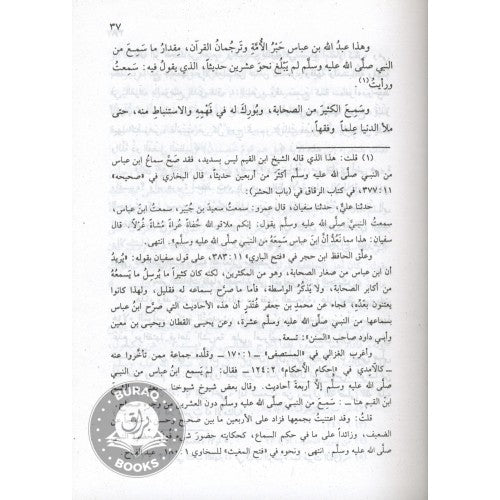 ٣٧
وهذا عبدُ الله بن عباس حَبْرُ الأُمَّةِ وتَرجُمانُ القرآن، مِقدارُ ما سَمِعَ من
النبي صلَّى الله عليه وسلَّم لم يَبْلُغ نحوَ عشرين حديثاً، الذي يقولُ فيه: سَمِعتُ
ورأيتُ(١).
وسَمِعَ الكثيرَ من الصحابة، وبُورِكَ له في فَهْمِهِ والاستنباطِ منه، حتى
ملأ الدنيا عِلماً وفقهاً.
(١) قلت: هذا الذي قاله الشيخ ابن القيم ليس بسديد، فقد صَحَّ سماعُ ابن عباس
من النبي صلَّى الله عليه وسلَّم أكثرَ من أربعين حديثاً، قال البخاري في «صحيحه»
١١:٣٧٧، في كتاب الرقاق في (باب الحشر):
حدثنا عليٌّ، حدثنا سفيان، قال عمرو: سمعتُ سعيدَ بن جُبَير، سمعتُ ابنَ عباس،
سمعتُ النبيَّ صلَّى الله عليه وسلَّم يقول: إنكم ملاقو الله حُفاةً عُراةً مُشاةً غُرْلاً. قال
سفيان: هذا مما نَعُدُّ أنَّ ابنَ عباس سَمِعَهُ من النبي صلَّى الله عليه وسلَّم». انتهى.
وعلَّق الحافظ ابن حجر في «فتح الباري» ١١:٣٨٣، على قول سفيان بقوله: «يُريدُ
أن ابنَ عباس من صغار الصحابة، وهو من المكثرين، لكنه كان كثيراً ما يُرسِلُ ما يَسمعُهُ
من أكابر الصحابة، ولا يَذكُرُ الواسطة، فأما ما صرَّح بسماعه له فقليل، ولهذا كانوا
يعتنون بعَدِّه، فجاء عن محمد بن جعفر غُنْدَر أن هذه الأحاديث التي صرَّح ابن عباس
بسماعها من النبي صلَّى الله عليه وسلَّم عشرة، وعن يحيى القطان ويحيى بن معين
وأبي داود صاحب «السنن»: تسعة.
وأغرب الغزالي في «المستصفى» ــ ١:١٧٠ ــ وقلَّده جماعة ممن تأخَّروا عنه
ــ كالآمدي في «إحكام الأحكام» ٢:١٢٤ ــ فقال: لم يَسمع ابنُ عباس من النبي
صلَّى الله عليه وسلَّم إلاَّ أربعة أحاديث. وقال بعض شيوخ شيوخنا
ابن القيم هنا ــ: سَمِعَ من النبي صلَّى الله عليه وسلَّم دون العشرين من
قلتُ: وقد اعتنيتُ بجمعها فزاد على الأربعين ما بين صحيح
الضعيف، وزائداً على ما في حكم السماع، كحكايته حضورَ شيء
صلَّى الله عليه وسلَّم. انتهى. ونحوه في «فتح المغيث» للسخاوي
BURAQ
براق
BOOKS